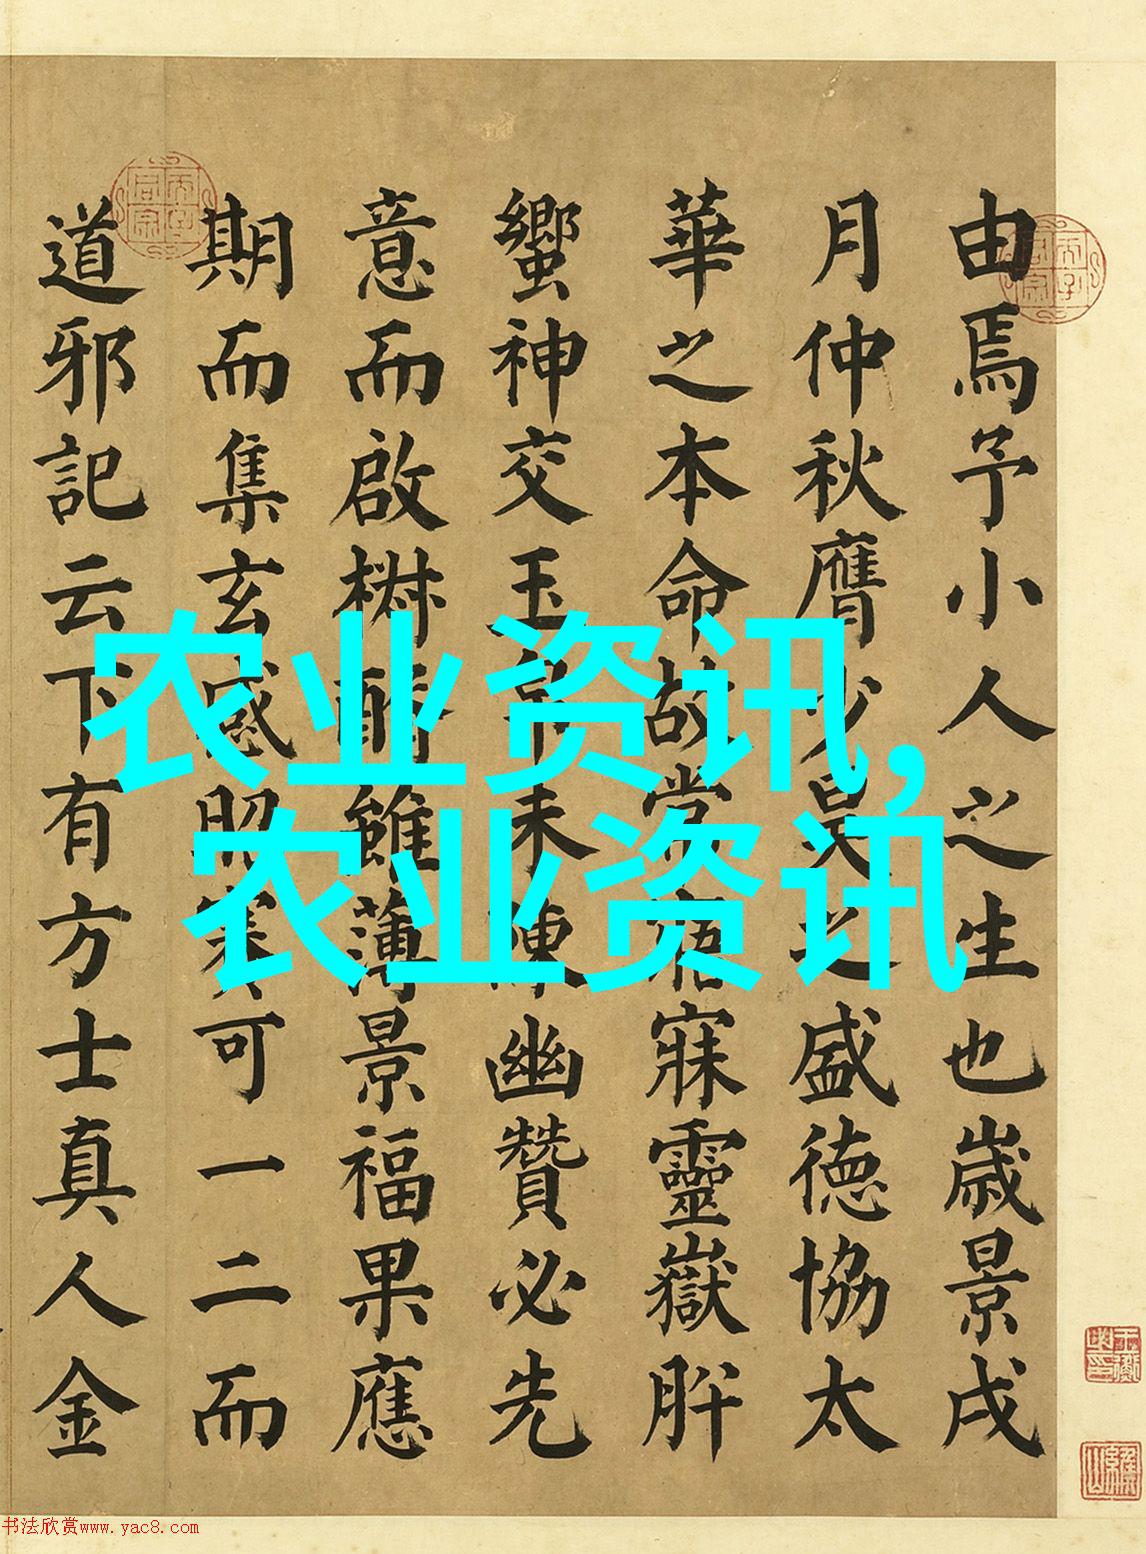 由焉予小人之生也歲景戌
月仲秋膺少昊之盛德協太
華之本命故常寤寐靈嶽肸
蠁神交玉帛未陳幽贊必先
意而啟椒醑雖薄景福果應
期而集玄感昭可一二而
道邪記云下有方士真人金
农业资讯,
农业资讯
书法欣赏www.yac8.com